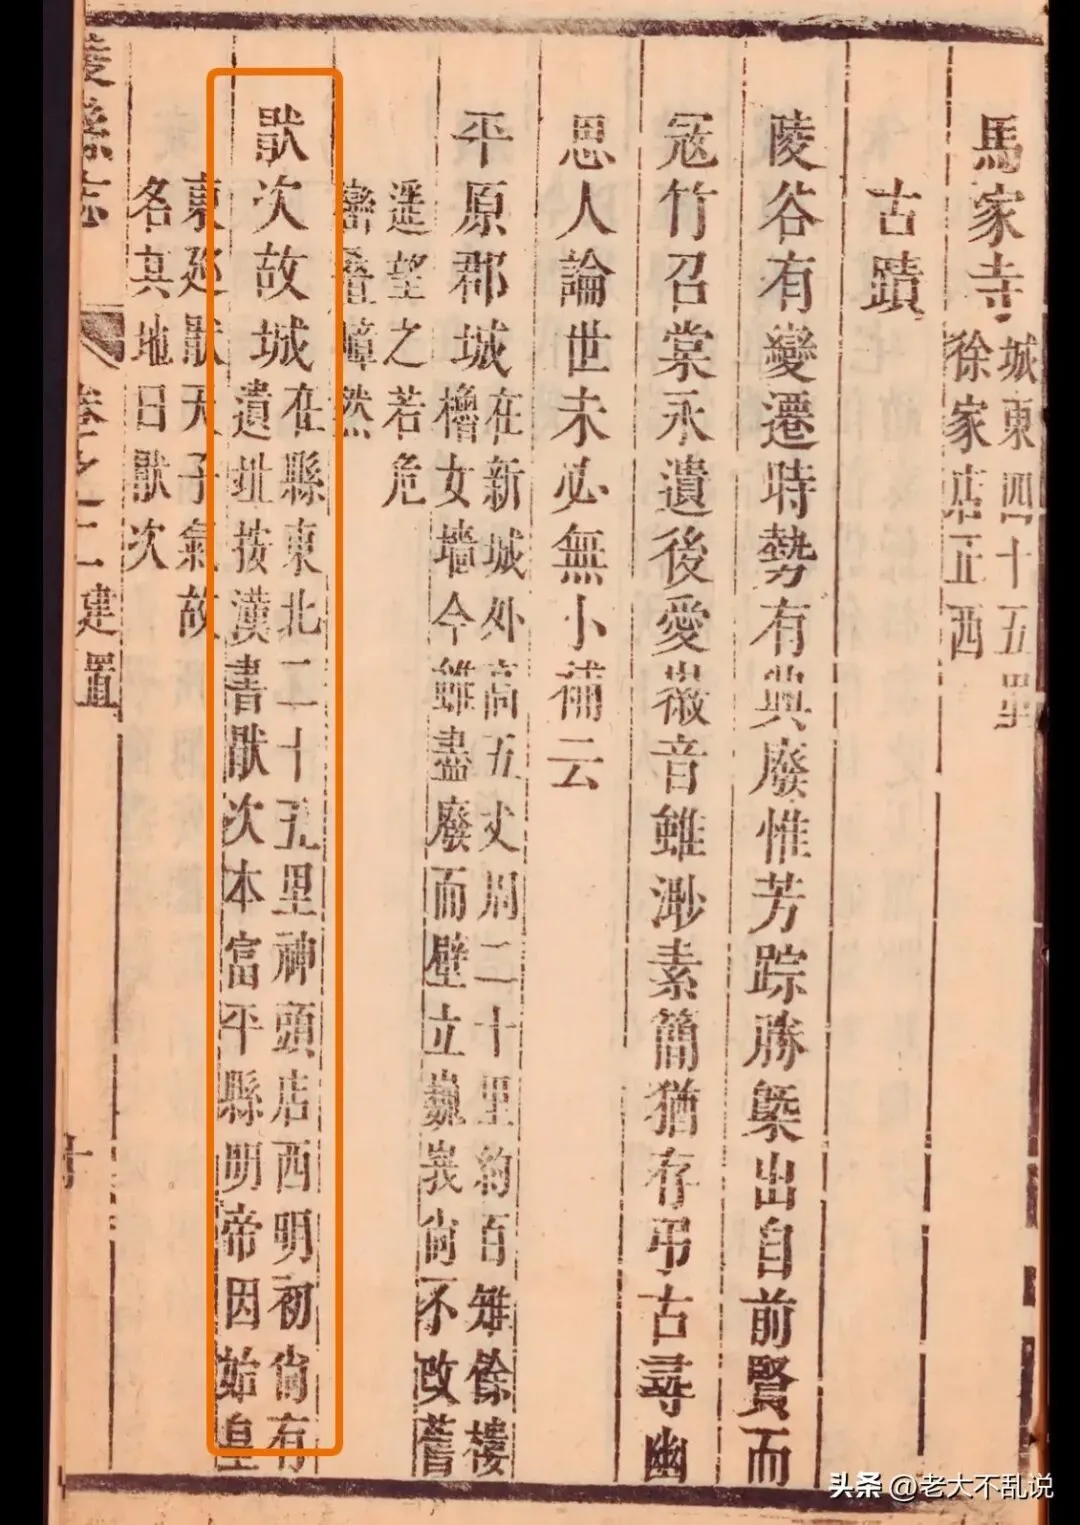 馬家寺
城東四十五里
徐家店正西
古蹟
陵谷有變遷時勢有興廢惟芳踪勝槩出自前賢而
冦竹召棠永遺後愛徽音雖渺素簡猶存弔古尋幽
思人論世未必無小補云
平原郡城
在新城外高五丈周二十里約百雉餘樓
櫓女墻今雖盡廢而壁立巍峩尚不改舊
遥望之若危
巒疊嶂然
猒次故城
在縣東北二十五里神頭店西明初尚有
遺址按漢書猒次本富平縣明帝因始皇
東廵猒天子氣故
名其地曰猒次
陵縣志
卷之二建置
头条 @老大不乱说